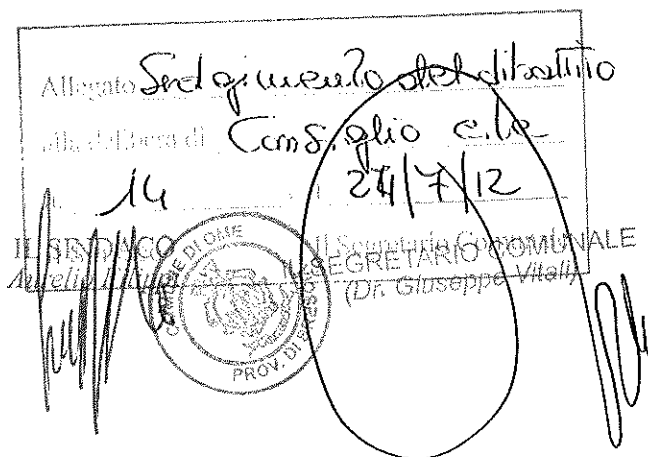 Allegato Svolgimento del dibattito
alla delibera di Consiglio c.le
14 24/7/12
IL SINDACO Il Segretario Comunale
Aurelio IL SEGRETARIO COMUNALE
(Dr. Giuseppe Vitali)
COMUNE DI OME
PROV. DI BRESCIA